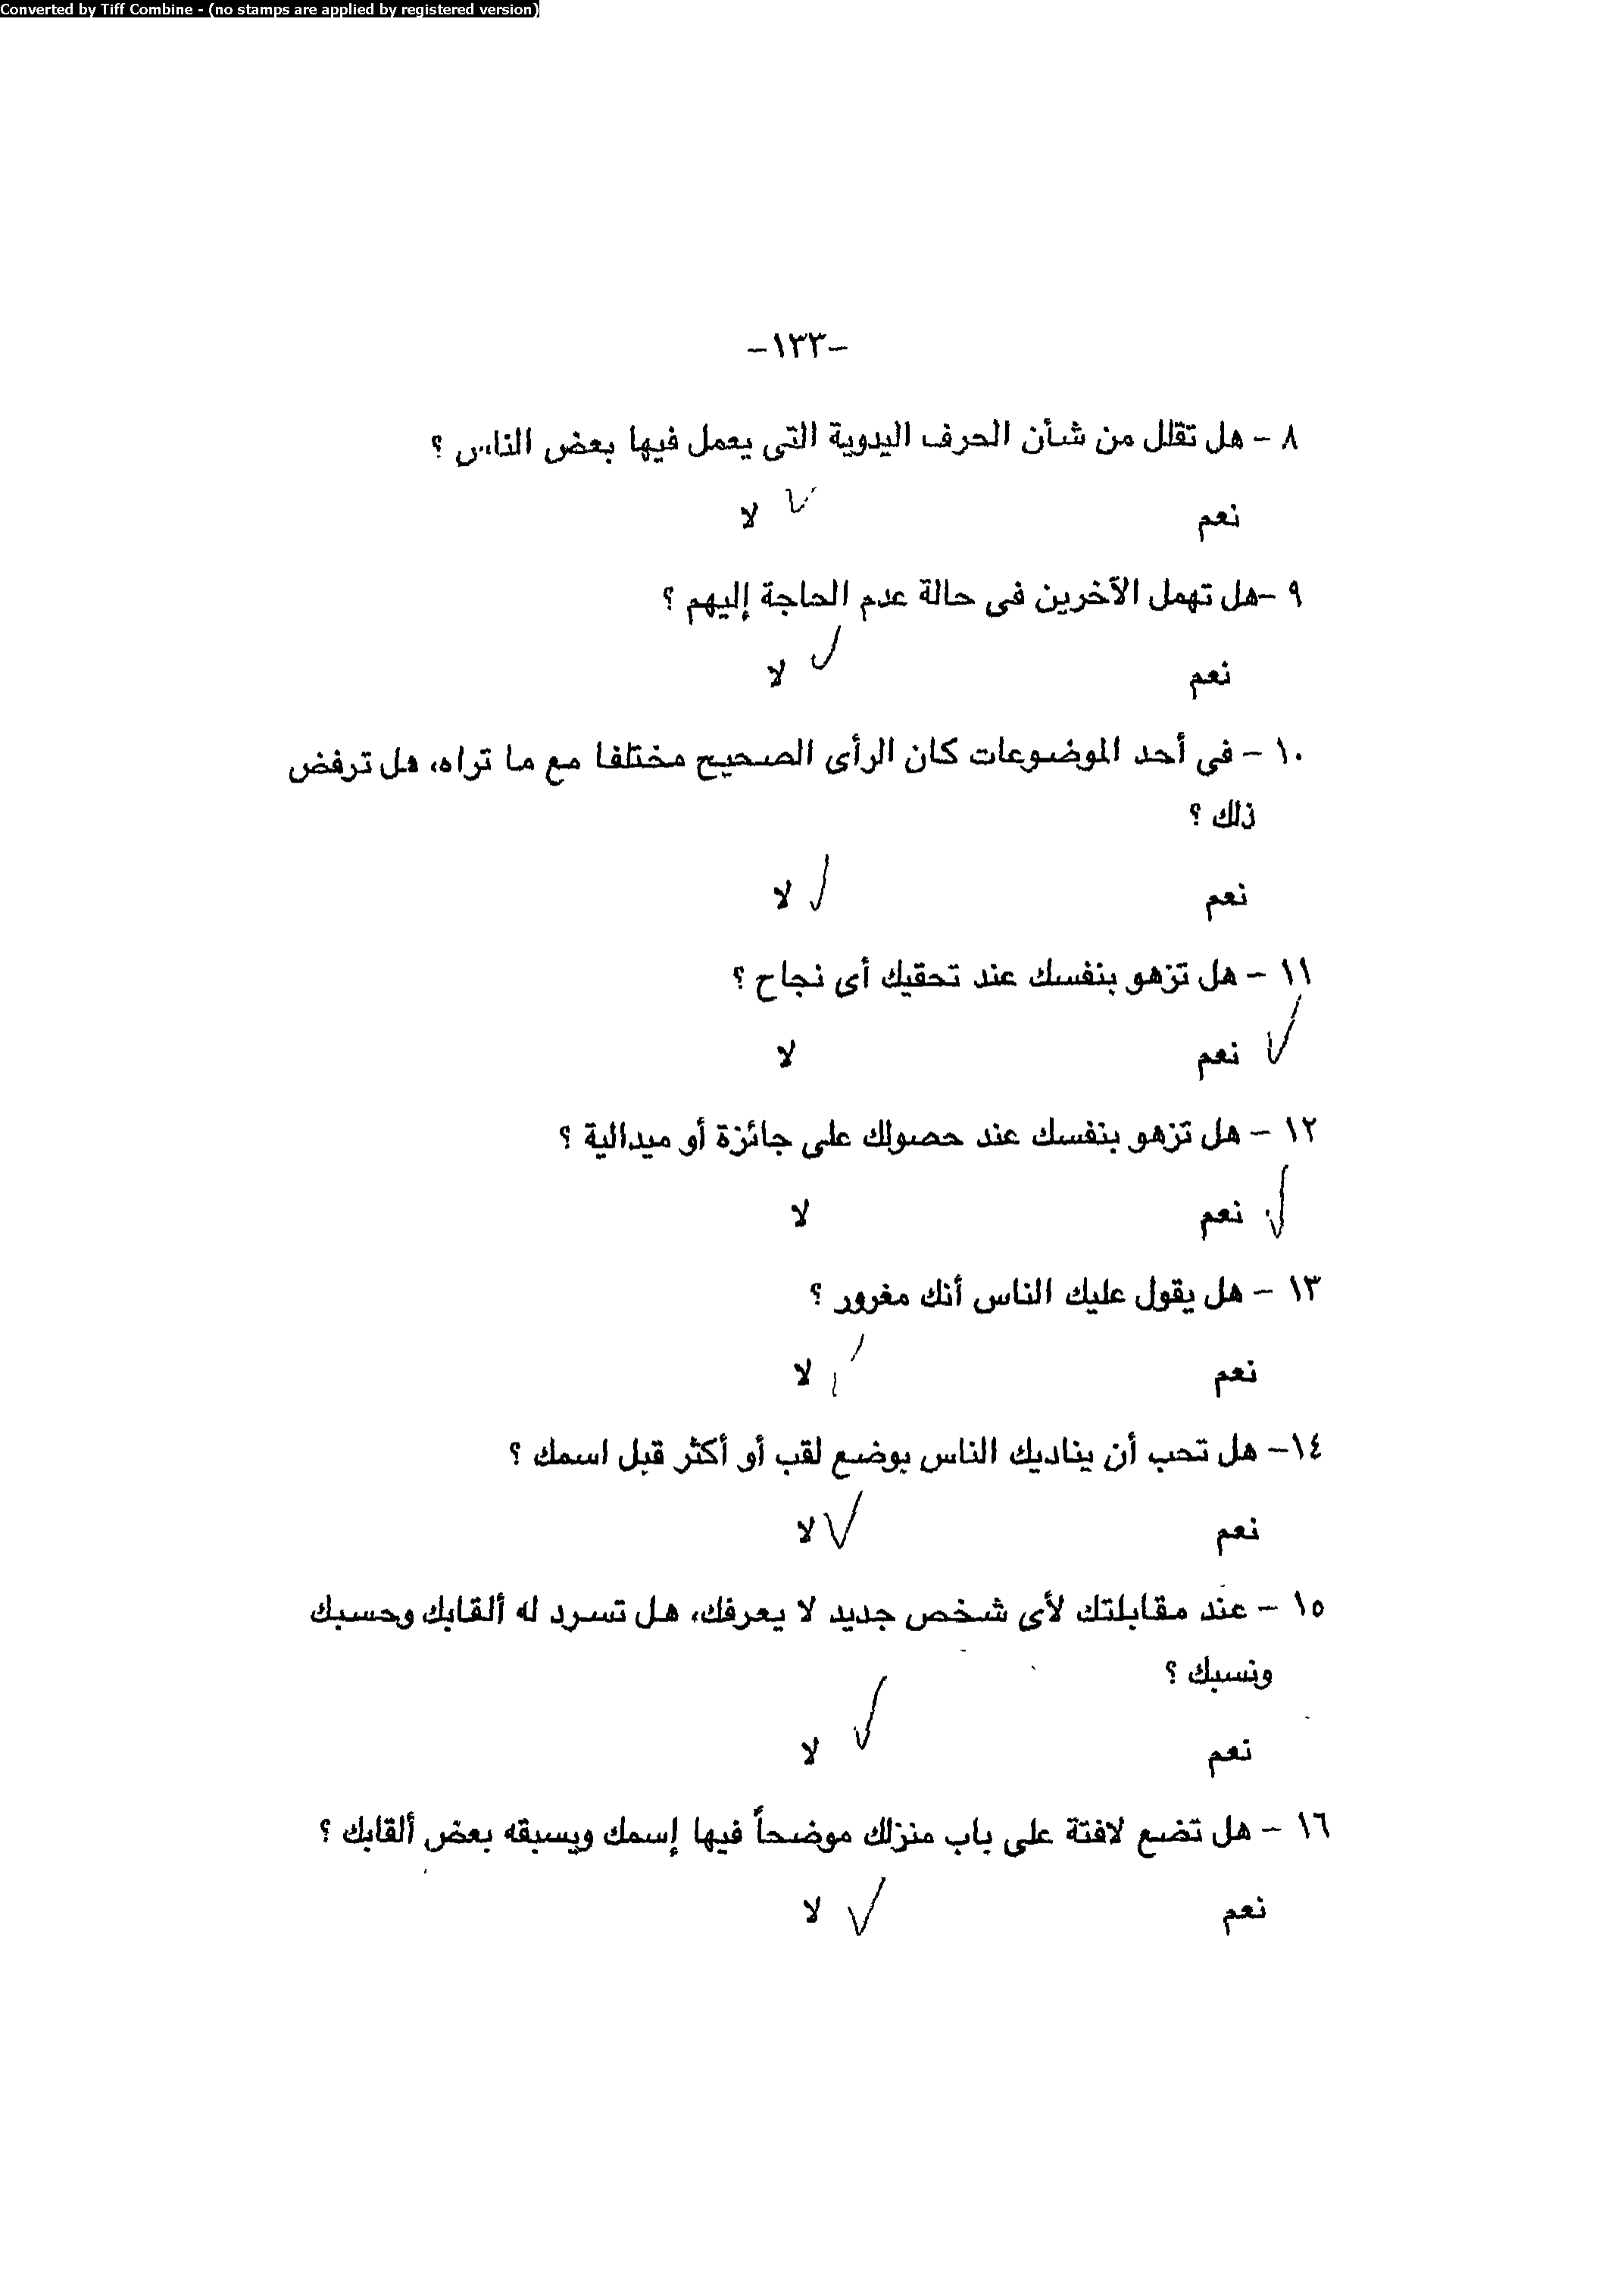 Converted by Tiff Combine - (no stamps are applied by registered version)
-١٣٣-
٨ - هل تقلل من شأن الحرف اليدوية التى يعمل فيها بعض الناس ؟
نعم لا
٩ -هل تهمل الآخرين فى حالة عدم الحاجة إليهم ؟
نعم لا
١٠ - فى أحد الموضوعات كان الرأى الصحيح مختلفا مع ما تراه، هل ترفض
ذلك ؟
نعم لا
١١ - هل تزهو بنفسك عند تحقيك أى نجاح ؟
نعم لا
١٢ - هل تزهو بنفسك عند حصولك على جائزة أو ميدالية ؟
نعم لا
١٣ - هل يقول عليك الناس أنك مغرور ؟
نعم لا
١٤- هل تحب أن يناديك الناس بوضع لقب أو أكثر قبل اسمك ؟
نعم لا
١٥ - عند مقابلتك لأى شخص جديد لا يعرفك، هل تسرد له ألقابك وحسبك
ونسبك ؟
نعم لا
١٦ - هل تضع لافتة على باب منزلك موضحاً فيها إسمك ويسبقه بعض ألقابك ؟
نعم لا